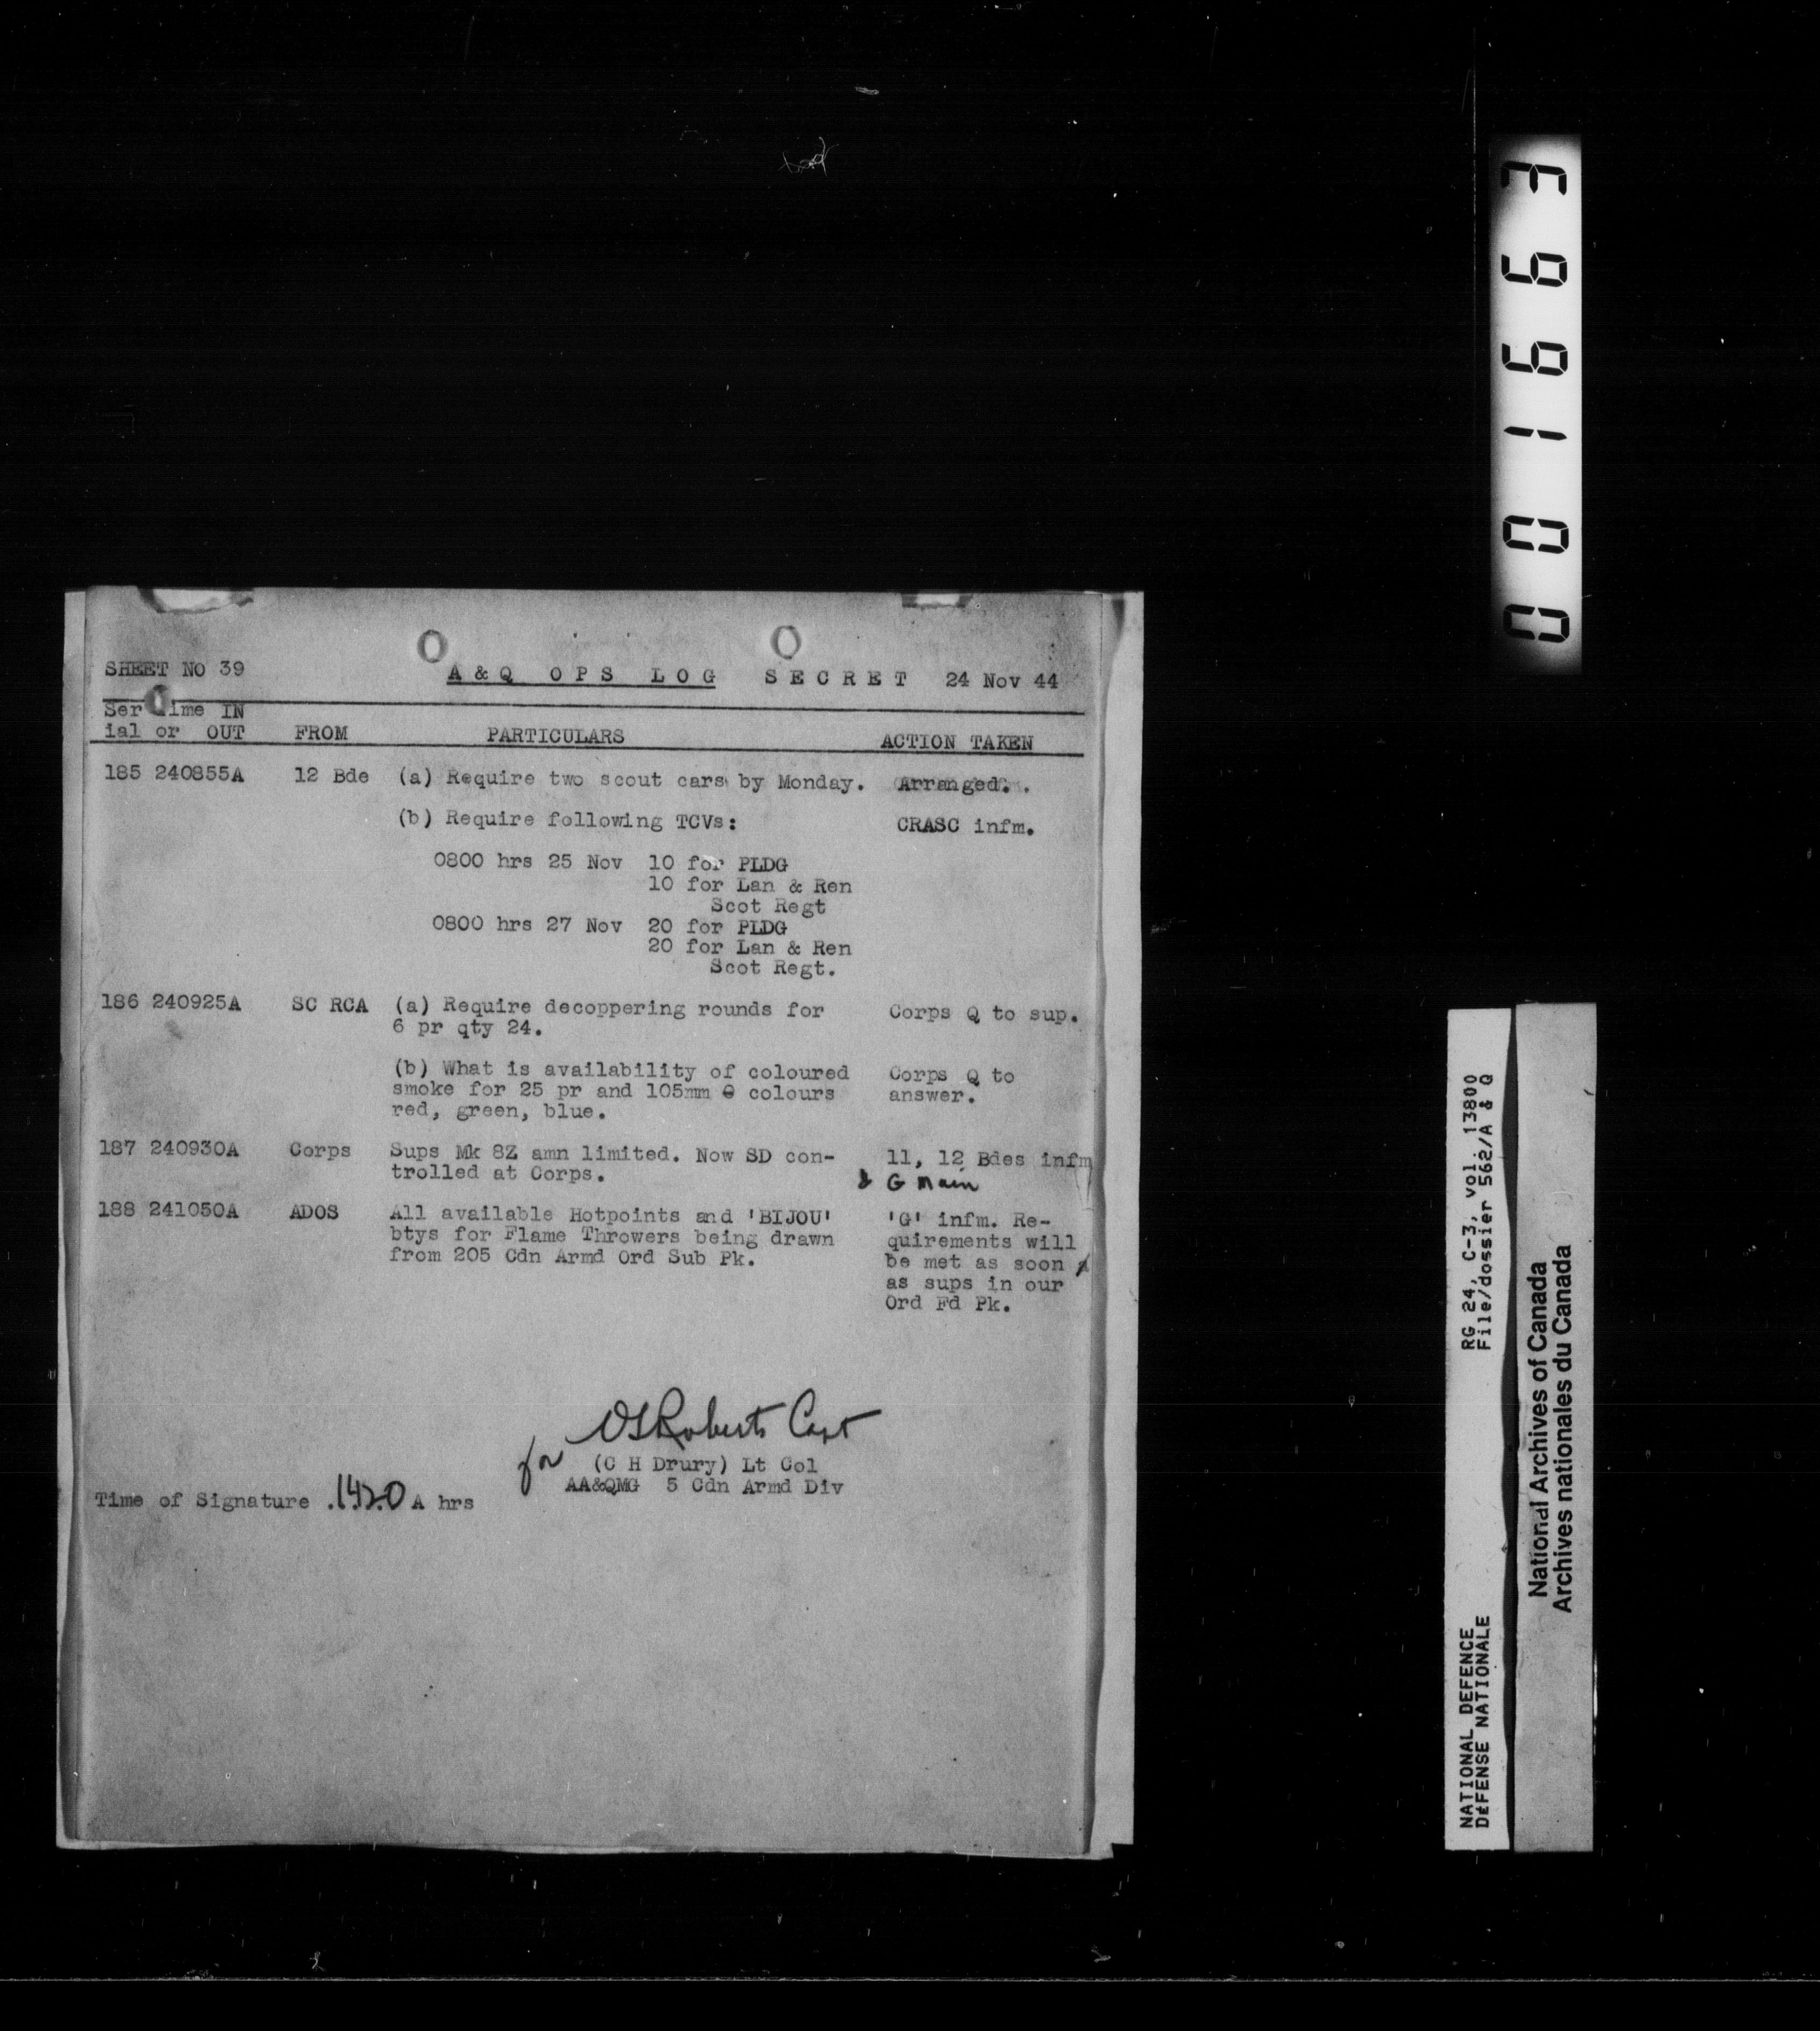 001663
SHEET NO 39
A & Q OPS LOG SECRET 24 Nov 44
Ser Time IN
ial or OUT FROM PARTICULARS ACTION TAKEN
185 240855A 12 Bde (a) Require two scout cars by Monday. Arranged.
(b) Require following TCVs: CRASC infm.
0800 hrs 25 Nov 10 for PLDG
10 for Lan & Ren
Scot Regt
0800 hrs 27 Nov 20 for PLDG
20 for Lan & Ren
Scot Regt.
186 240925A SC RCA (a) Require decoppering rounds for Corps Q to sup.
6 pr qty 24.
(b) What is availability of coloured Corps Q to
smoke for 25 pr and 105mm colours answer.
red, green, blue.
187 240930A Corps Sups Mk 8Z amn limited. Now SD con- 11, 12 Bdes infm
trolled at Corps. & G Main
188 241050A ADOS All available Hotpoints and 'BIJOU' 'G' infm. Re-
btys for Flame Throwers being drawn quirements will
from 205 Cdn Armd Ord Sub Pk. be met as soon
as sups in our
Ord Fd Pk.
Roberts Capt
for (C H Drury) Lt Col
AA&QMG 5 Cdn Armd Div
Time of Signature .1420 A hrs
NATIONAL DEFENCE RG 24, C-3, vol. 13800
DÉFENSE NATIONALE File/dossier 562/A & Q
National Archives of Canada
Archives nationales du Canada